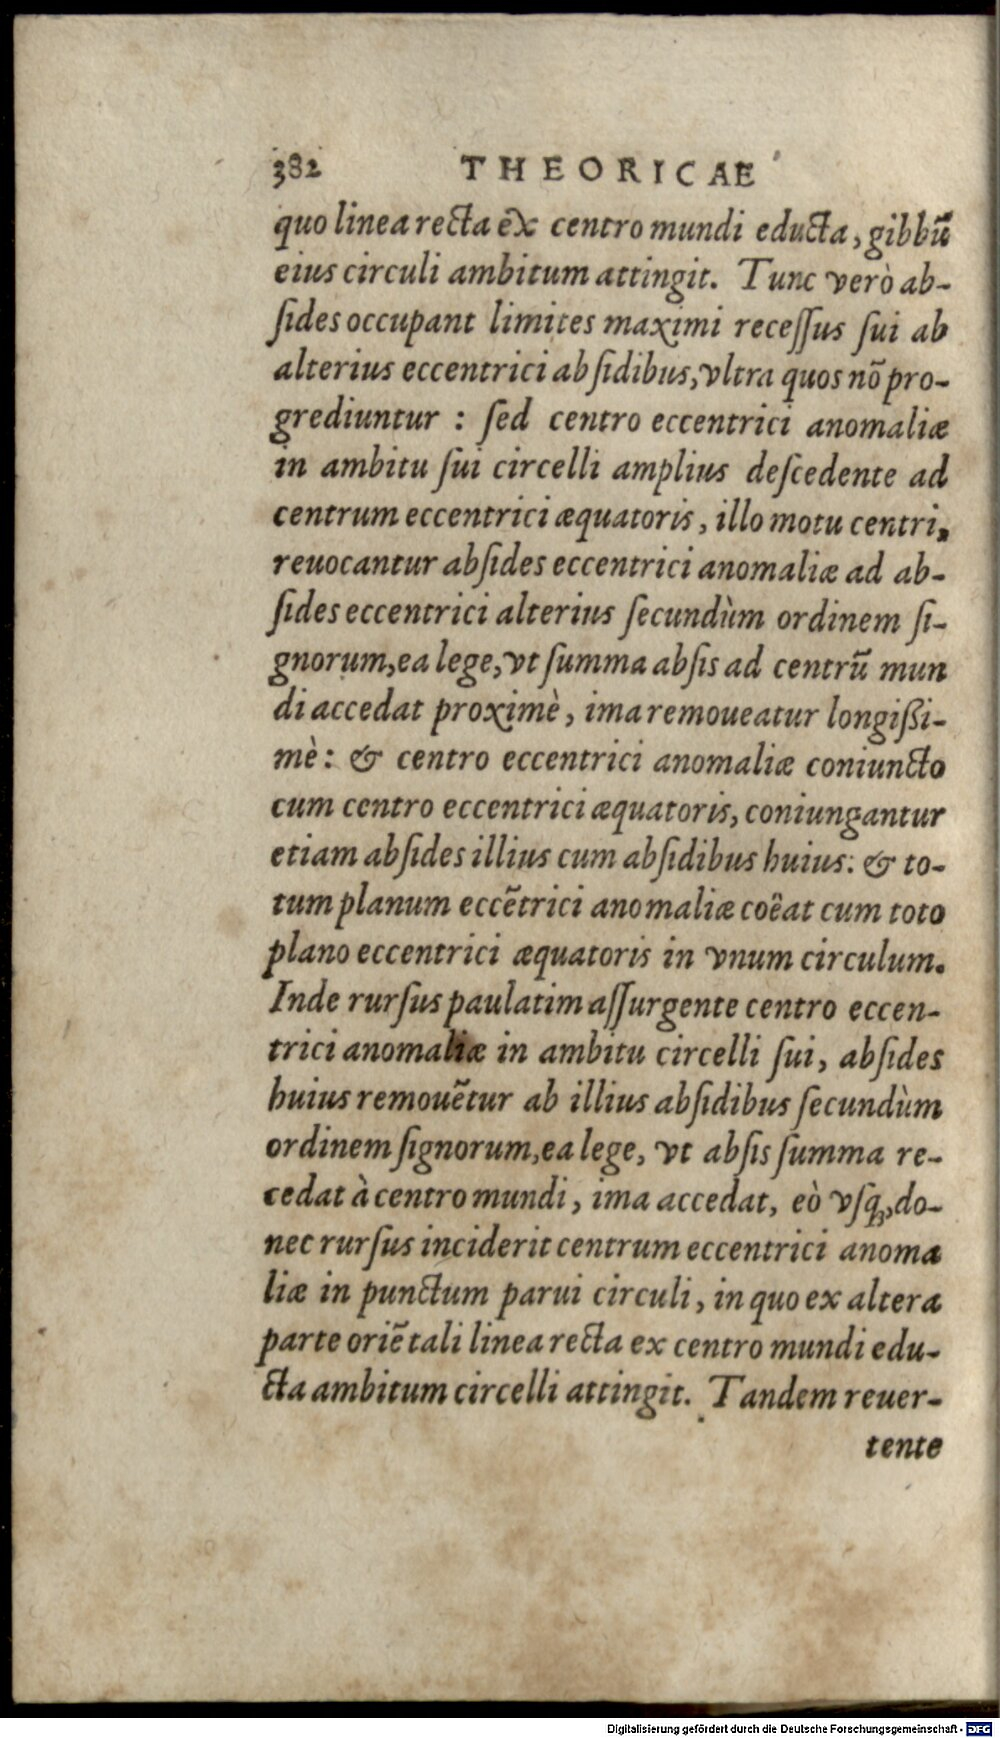 382 THEORICAE
quo linea recta ex centro mundi educta, gibbū
eius circuli ambitum attingit. Tunc verò ab-
ſides occupant limites maximi receſſus ſui ab
alterius eccentrici abſidibus, vltra quos nō pro-
grediuntur : ſed centro eccentrici anomaliæ
in ambitu ſui circelli amplius deſcedente ad
centrum eccentrici æquatoris, illo motu centri,
reuocantur abſides eccentrici anomaliæ ad ab-
ſides eccentrici alterius ſecundùm ordinem ſi-
gnorum, ea lege, vt ſumma abſis ad centrū mun
di accedat proximè, ima remoueatur longißi-
mè: & centro eccentrici anomaliæ coniuncto
cum centro eccentrici æquatoris, coniungantur
etiam abſides illius cum abſidibus huius: & to-
tum planum eccētrici anomaliæ coêat cum toto
plano eccentrici æquatoris in vnum circulum.
Inde rurſus paulatim aſſurgente centro eccen-
trici anomaliæ in ambitu circelli ſui, abſides
huius remouētur ab illius abſidibus ſecundùm
ordinem ſignorum, ea lege, vt abſis ſumma re-
cedat à centro mundi, ima accedat, eò vſꝗ, do-
nec rurſus inciderit centrum eccentrici anoma
liæ in punctum parui circuli, in quo ex altera
parte oriētali linea recta ex centro mundi edu-
cta ambitum circelli attingit. Tandem reuer-
tente
Digitalisierung gefördert durch die Deutsche Forschungsgemeinschaft - DFG